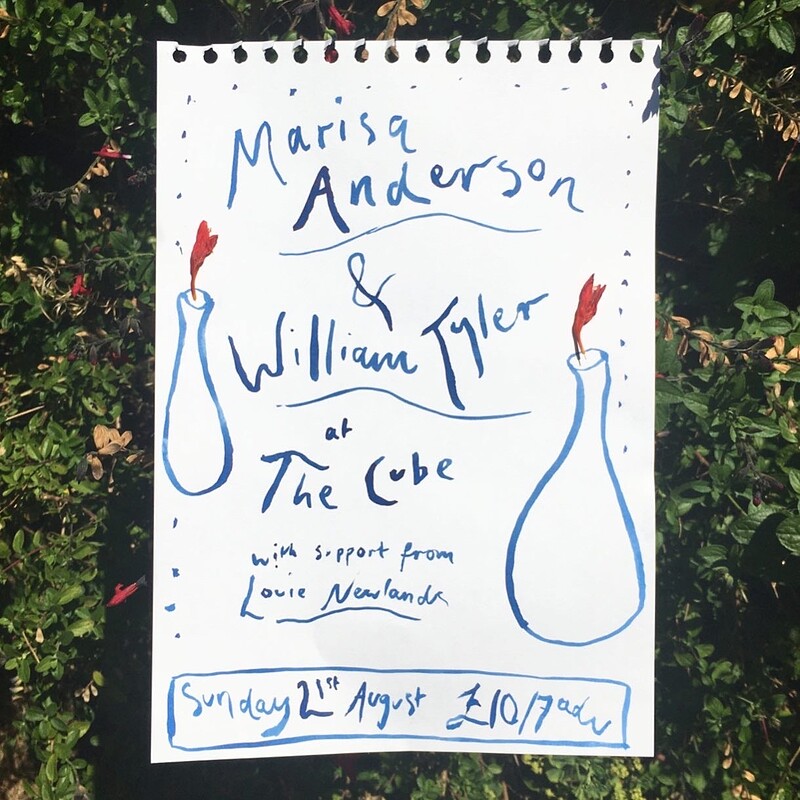 Marisa
Anderson
&
William Tyler
at
The Cube
with support from
Louie Newlands
Sunday 21st August £10/7 adv